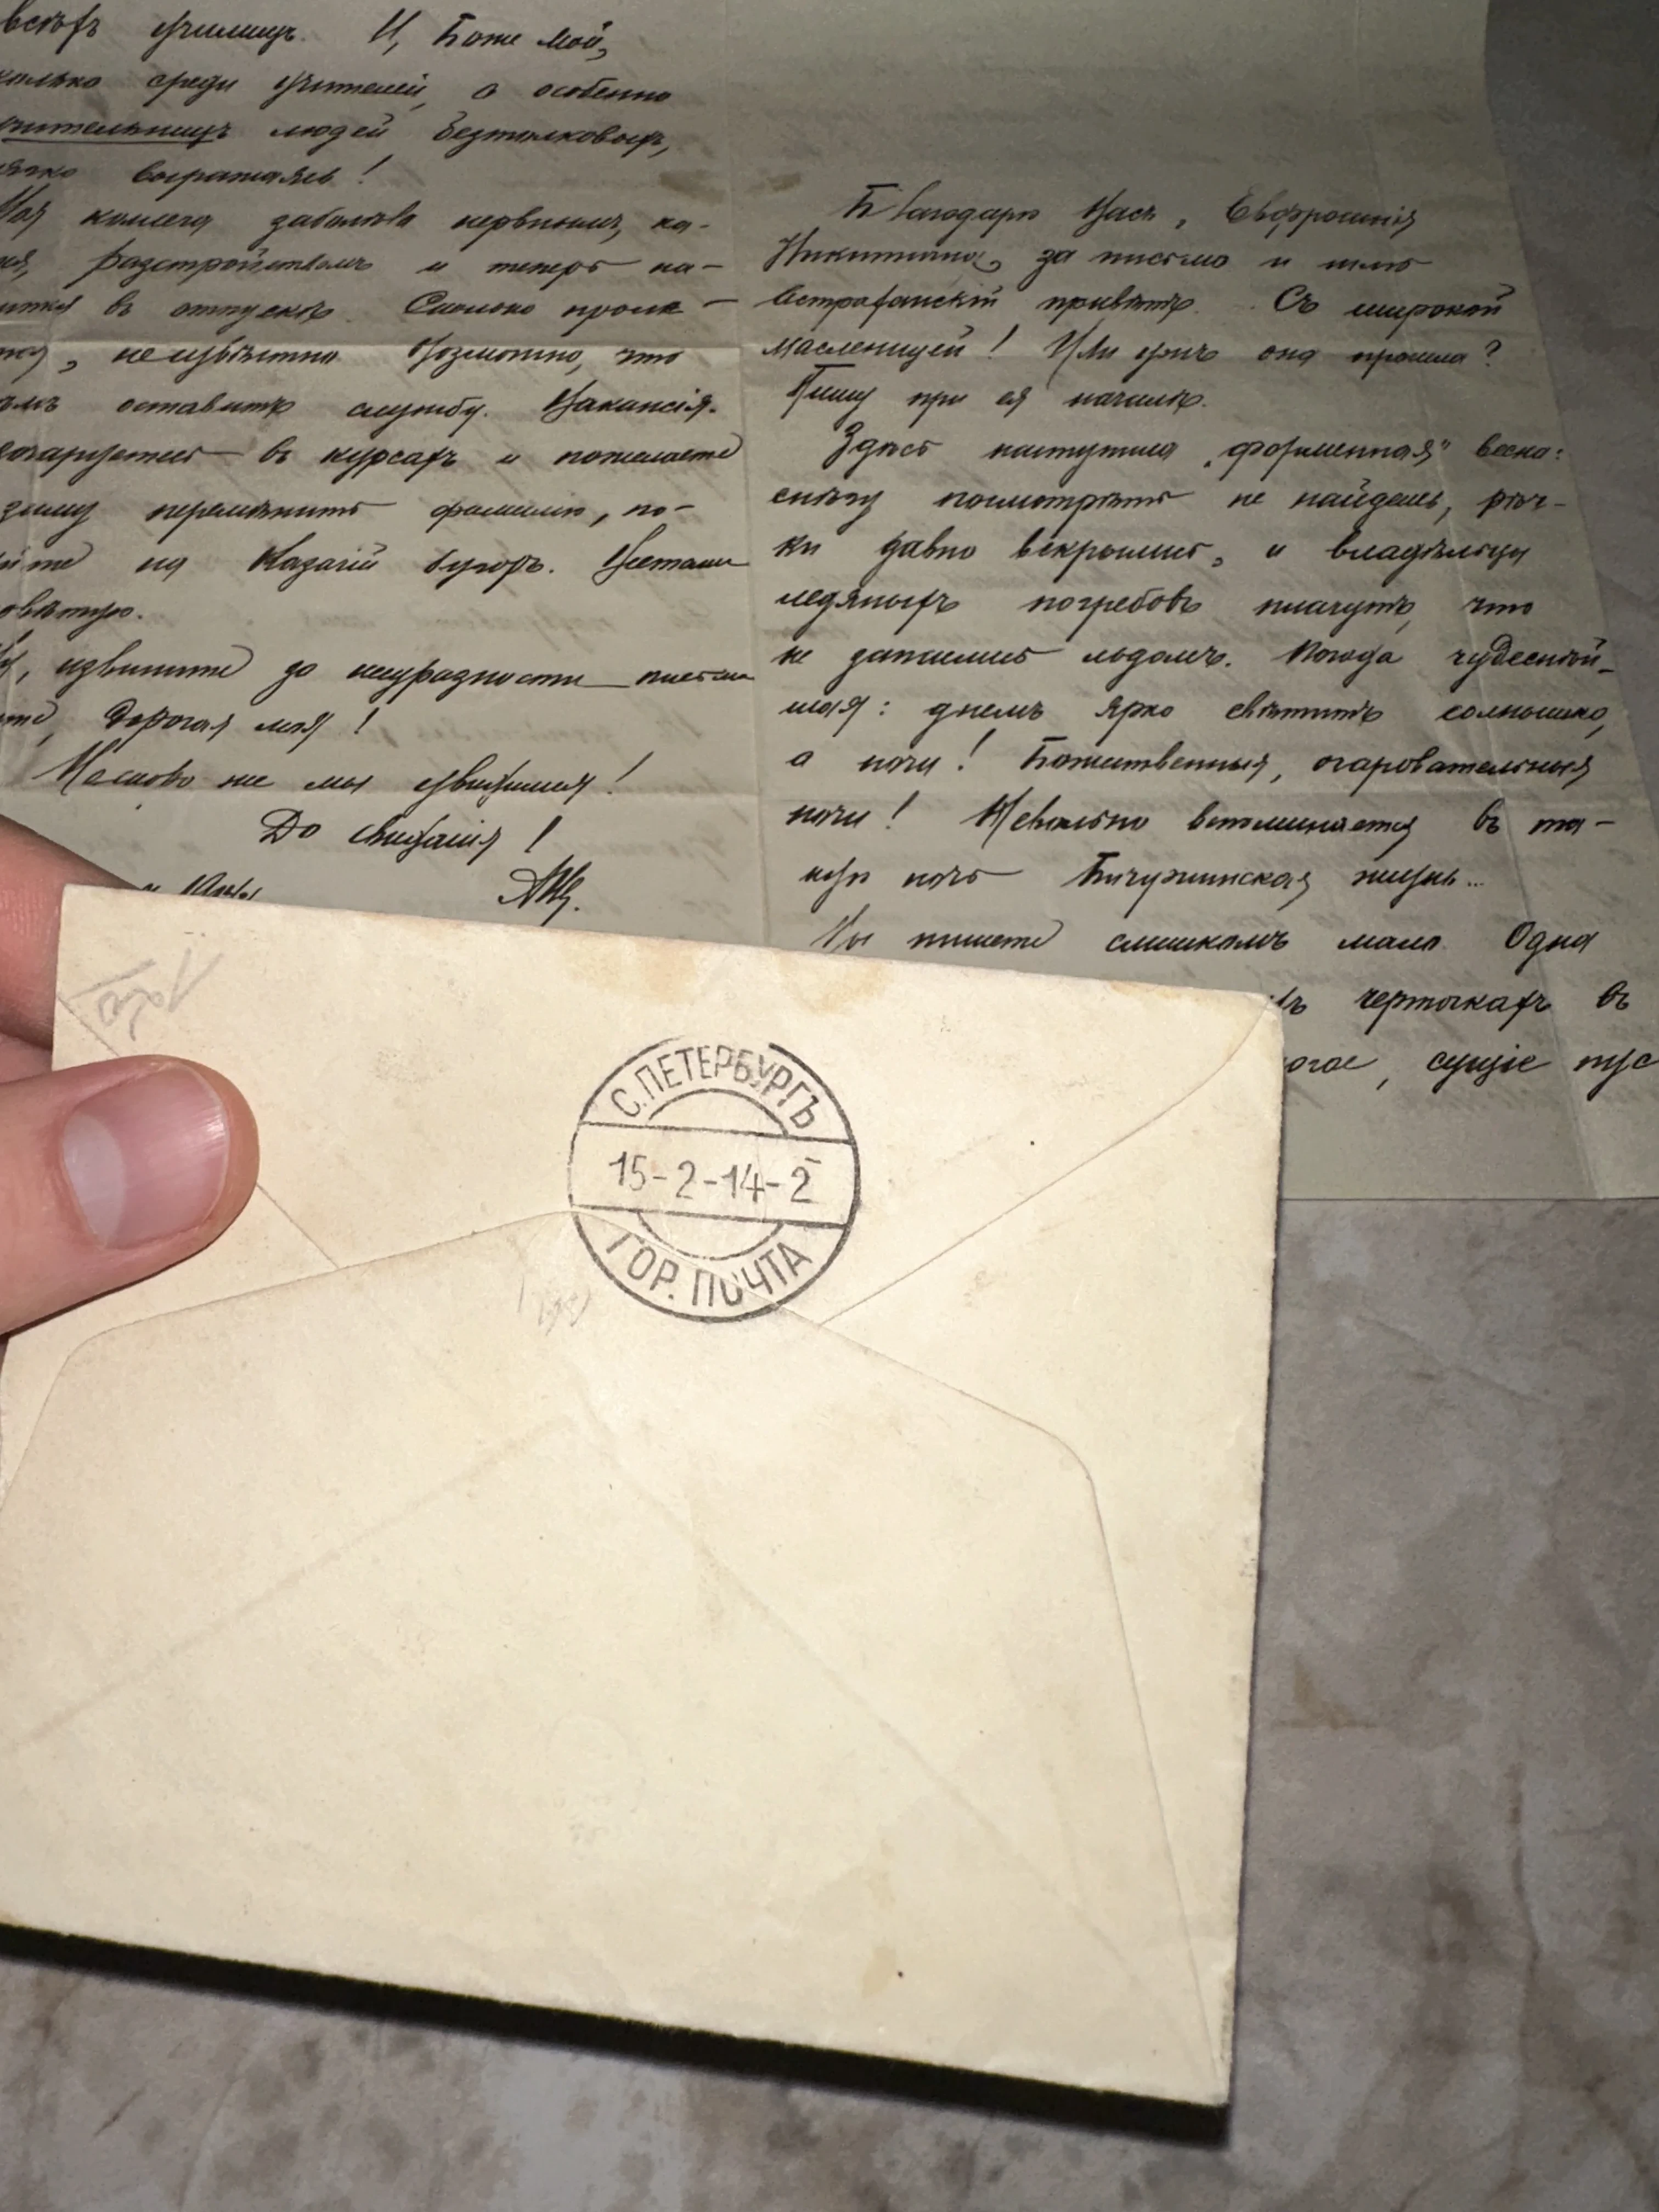 всѣхъ училищъ. И, Боже мой,
сколько среди учителей, а особенно
учительницъ людей безтолковыхъ,
мягко выражаясь!
Моя коллега заболѣла нервнымъ, ка-
разстройствомъ и теперь на-
въ отпускѣ. Сколько
неизвѣстно. Возможно, что
оставитъ службу. Вакансія.
въ курсахъ и пожелаете
перемѣнить фамилію, по-
на Казачій бугоръ.
извините за
Дорогая моя!
не мы увидимся!
До свиданія!
Благодарю Васъ, Евфросинія
Никитична, за письмо и шлю
Астраханскій привѣтъ. Съ широкой
масленицей! Или ужъ она прошла?
Пишу при ея началѣ.
Здѣсь наступила „форменная" весна:
снѣгу посмотрѣть не найдешь, рѣч-
ки давно вскрылись, и владѣльцы
ледяныхъ погребовъ плачутъ, что
не запаслись льдомъ. Погода чудеснѣй-
шая: днемъ ярко свѣтитъ солнышко,
а ночи! Божественныя, очаровательныя
ночи! Невольно вспоминается въ та-
кую ночь Бичуринская жизнь...
Вы пишете слишкомъ мало. Одна
черточкахъ въ
сущіе
С.ПЕТЕРБУРГЪ
15-2-14-2
ГОР. ПОЧТА